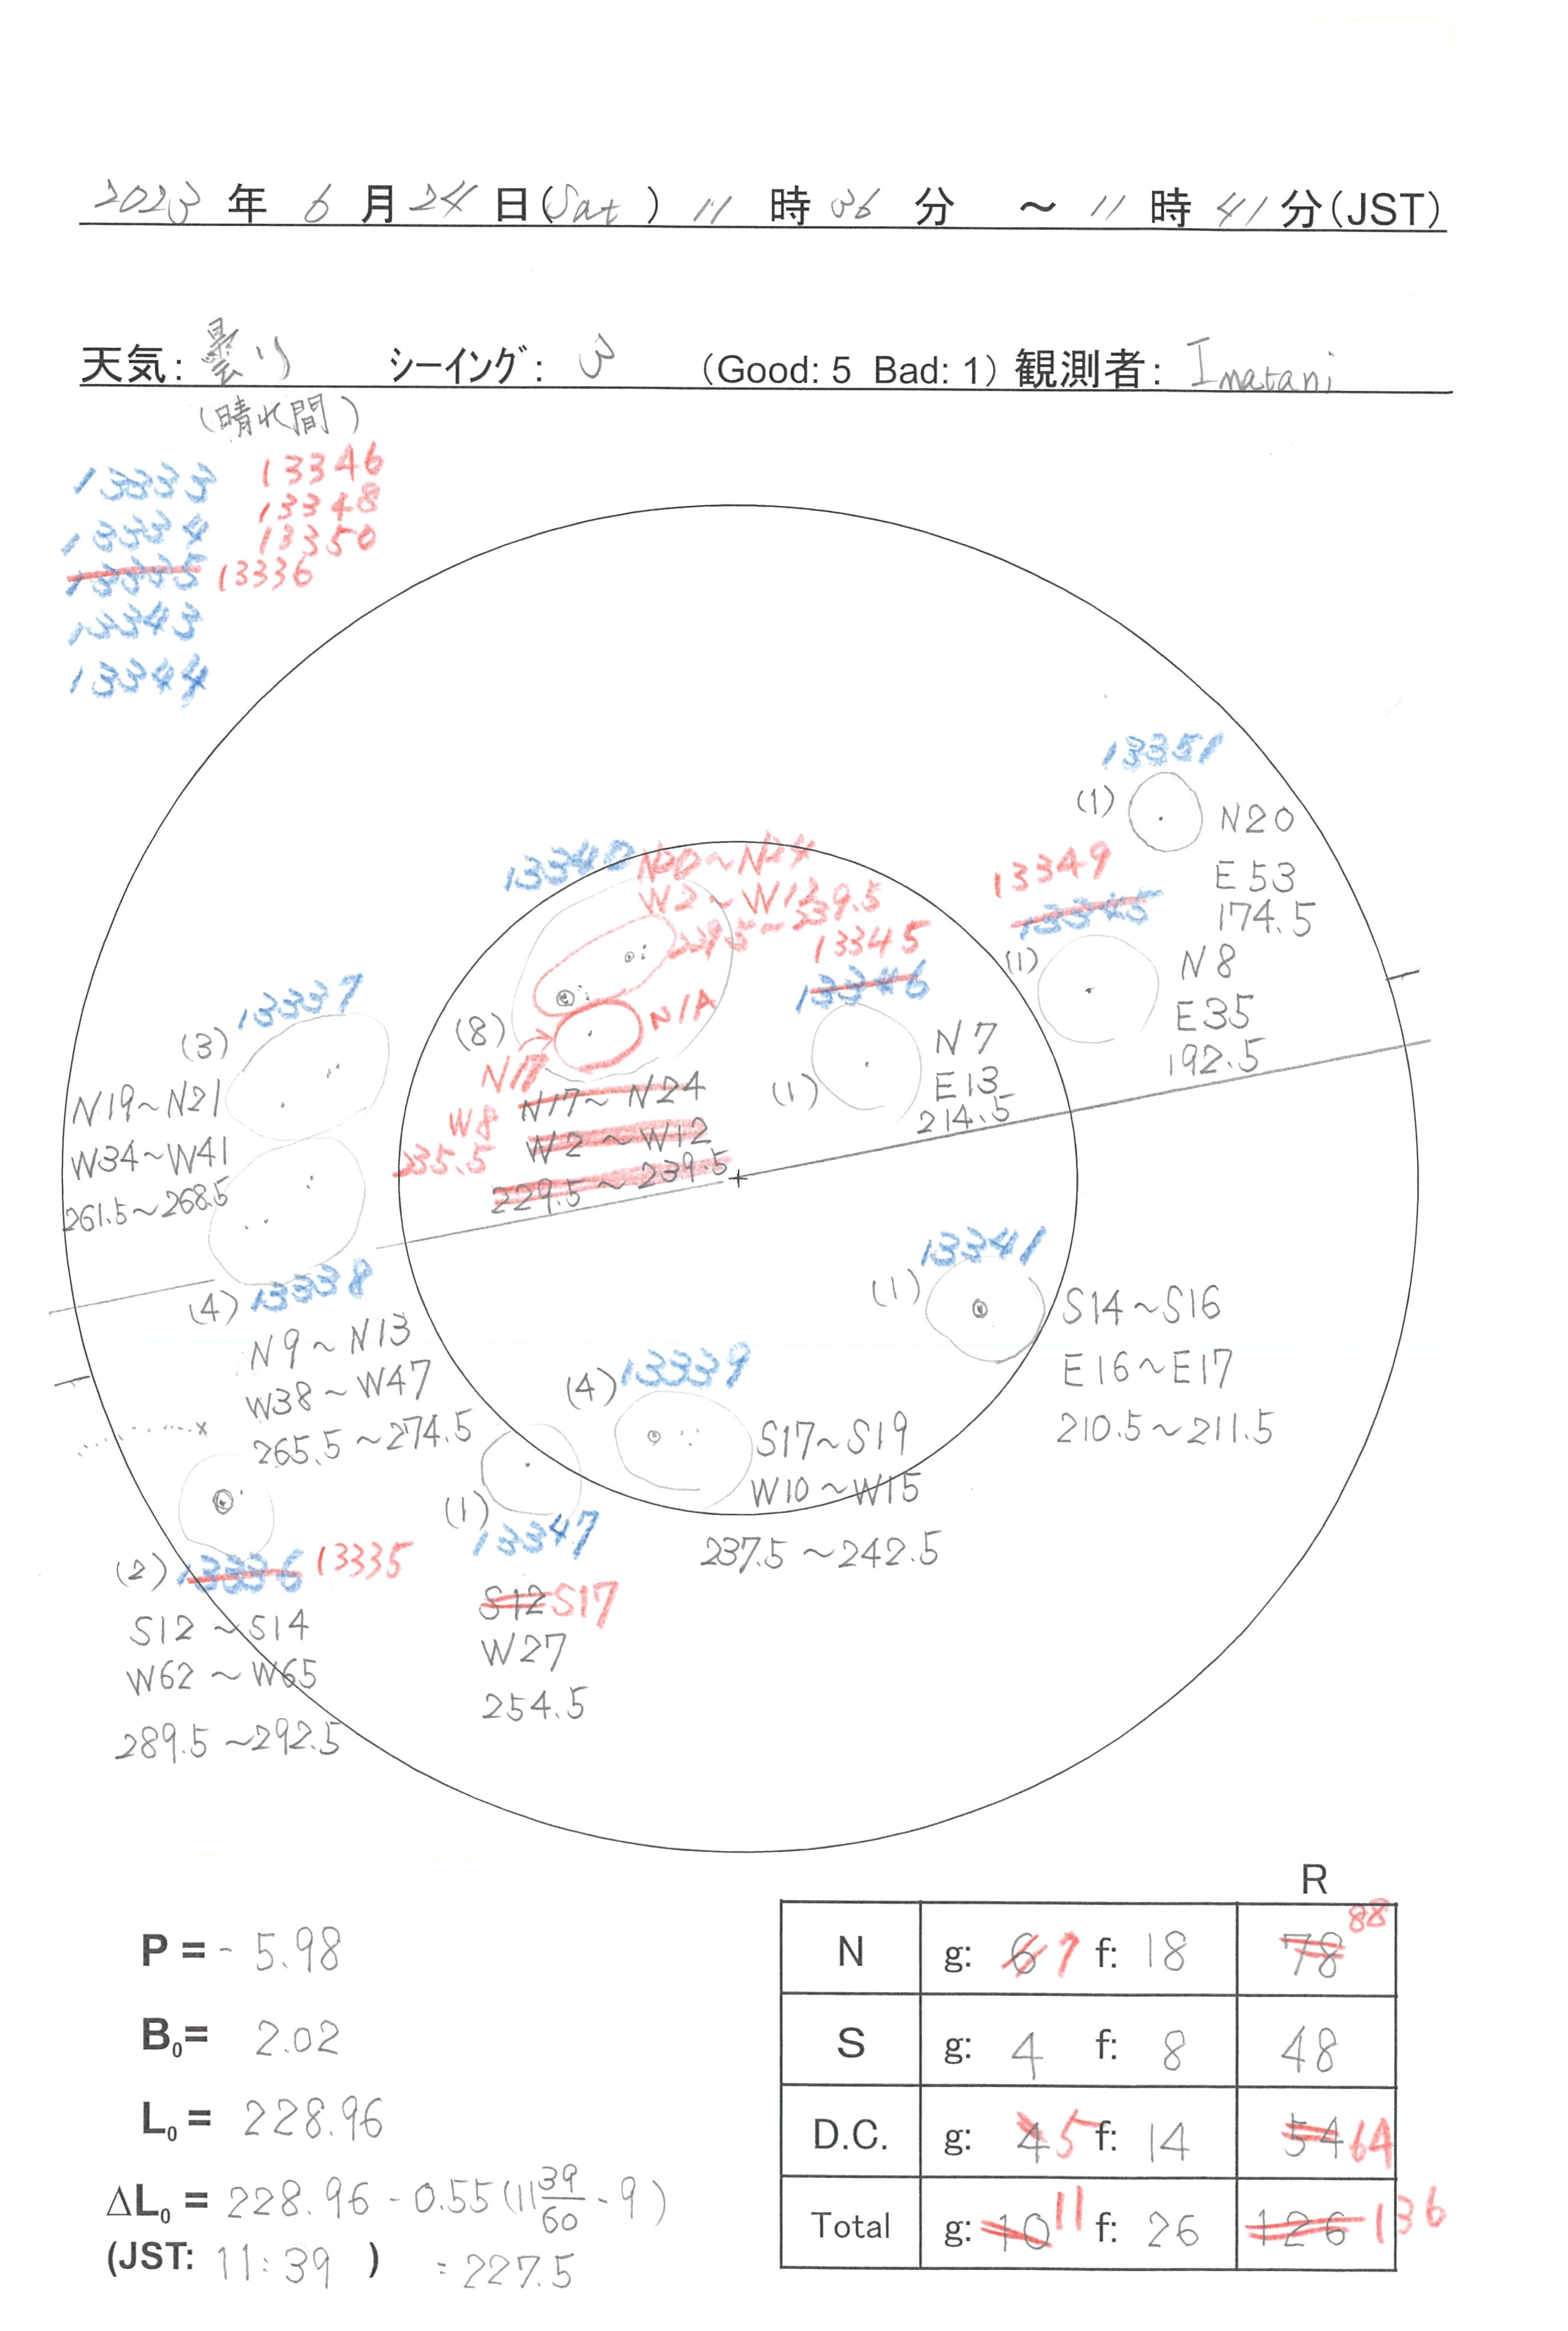 2023 年 6 月 24 日(Sat) 11 時 36 分 ～ 11 時 41 分(JST)
天気: 曇り ｼｰｲﾝｸﾞ: 3 (Good: 5 Bad: 1) 観測者: Imatani
(晴れ間)
13333 13346
13334 13348
13350
13335 13336
13343
13344
13351
(1) N20
E53
174.5
13349
13345
(1) N8
E35
192.5
13340 N20~N24
W2~W12
229.5~239.5
(8)
N/A
N17
W8
235.5
N17~N24
W2~W12
229.5~239.5
13345
13346
(1) N7
E13
214.5
13337
(3)
N19~N21
W34~W41
261.5~268.5
(4) 13338
N9~N13
W38~W47
265.5~274.5
13341
(1) S14~S16
E16~E17
210.5~211.5
(4) 13339
S17~S19
W10~W15
237.5~242.5
(1)
13347
S12 S17
W27
254.5
(2) 13336 13335
S12~S14
W62~W65
289.5~292.5
R
P = - 5.98
B₀= 2.02
L₀ = 228.96
ΔL₀ = 228.96 - 0.55(11 39/60 - 9)
(JST: 11:39 ) = 227.5
N g: 6 7 f: 18 78 88
S g: 4 f: 8 48
D.C. g: 4 5 f: 14 54 64
Total g: 10 11 f: 26 126 136